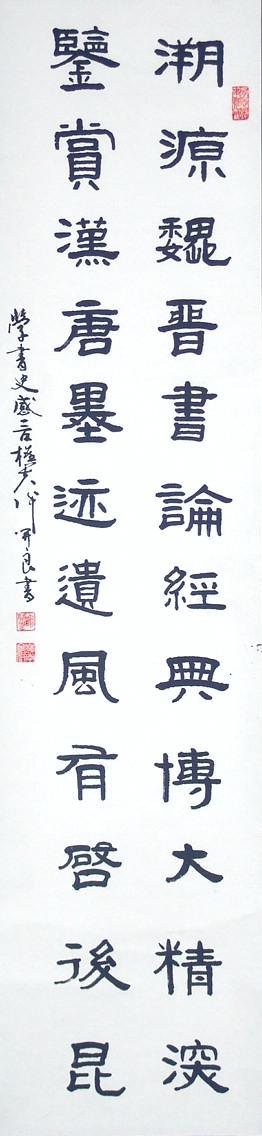 溯源魏晉書論經典博大精深
鑒賞漢唐墨迹遺風有啓後昆
學書史感言
良書